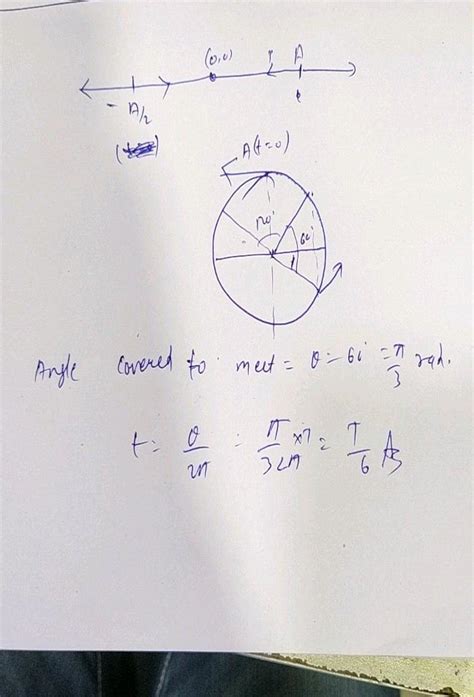 (0,0) A
- A/2
A(t=0)
120° 60°
Angle covered to meet = θ = 60° = π/3 rad.
t = θ/2π = π/3 2π × T = T/6 As